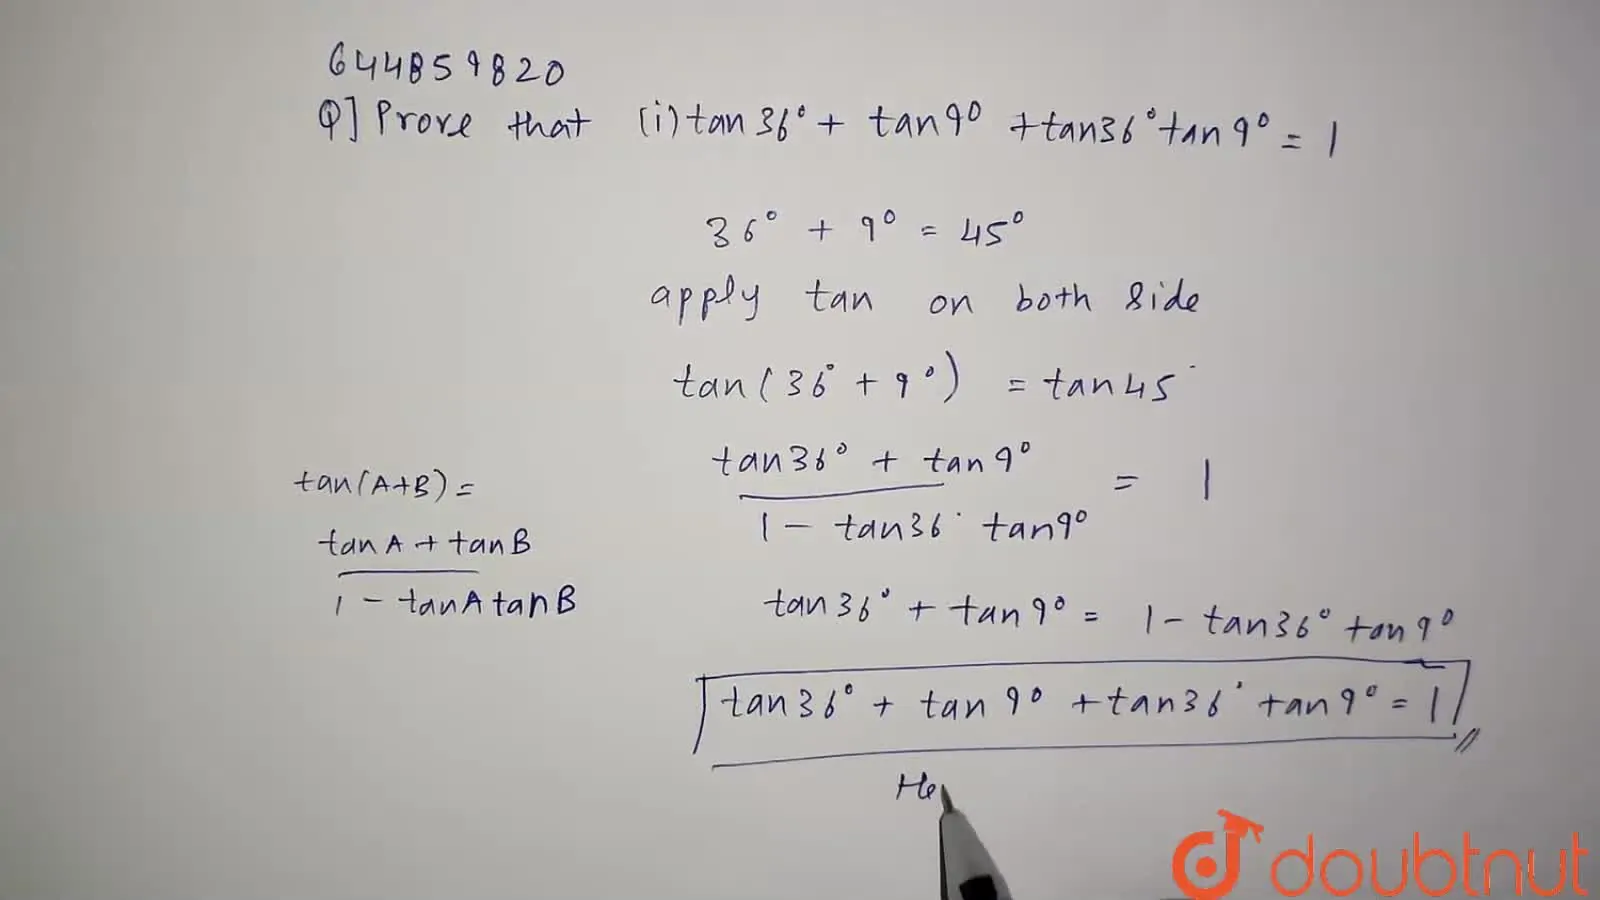 644859820
Q] Prove that (i) tan36° + tan9° + tan36° tan9° = 1
36° + 9° = 45°
apply tan on both side
tan(36° + 9°) = tan45°
tan(A+B) =
tanA + tanB
1 - tanA tanB
tan36° + tan9° = 1
1 - tan36° tan9°
tan36° + tan9° = 1 - tan36° tan9°
tan36° + tan9° + tan36° tan9° = 1
He
doubtnut